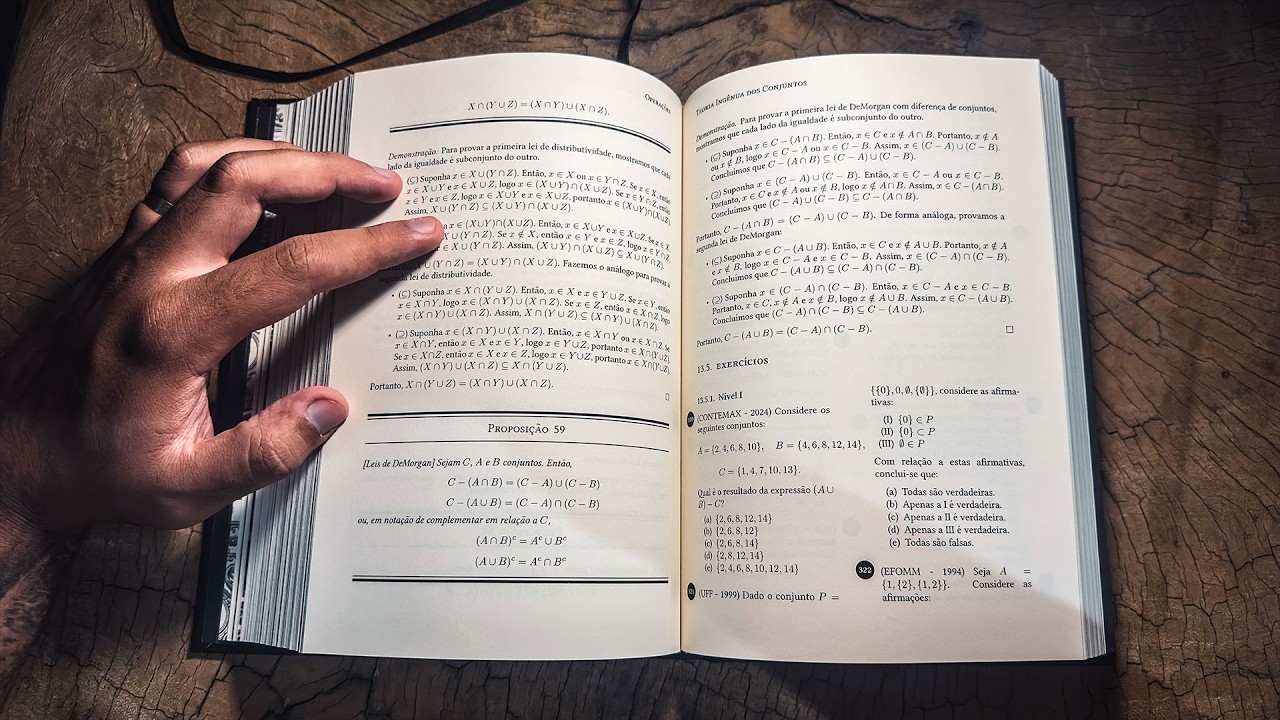 OPERAÇÕES
X ∩ (Y ∪ Z) = (X ∩ Y) ∪ (X ∩ Z).
Demonstração. Para provar a primeira lei de distributividade, mostramos que cada
lado da igualdade é subconjunto do outro.
(⊆) Suponha x ∈ X ∪ (Y ∩ Z). Então, x ∈ X ou x ∈ Y ∩ Z. Se x ∈ X, então
x ∈ X ∪ Y e x ∈ X ∪ Z, logo x ∈ (X ∪ Y) ∩ (X ∪ Z). Se x ∈ Y ∩ Z, então
x ∈ Y e x ∈ Z, logo x ∈ X ∪ Y e x ∈ X ∪ Z, portanto x ∈ (X ∪ Y) ∩ (X ∪ Z).
Assim, X ∪ (Y ∩ Z) ⊆ (X ∪ Y) ∩ (X ∪ Z).
(X ∪ Y) ∩ (X ∪ Z). Então, x ∈ X ∪ Y e x ∈ X ∪ Z. Se x ∈ X,
∪ (Y ∩ Z). Se x ∉ X, então x ∈ Y e x ∈ Z, logo x ∈ Y ∩ Z,
∪ (Y ∩ Z). Assim, (X ∪ Y) ∩ (X ∪ Z) ⊆ X ∪ (Y ∩ Z).
∪ (Y ∩ Z) = (X ∪ Y) ∩ (X ∪ Z). Fazemos o análogo para provar a
segunda lei de distributividade.
• (⊆) Suponha x ∈ X ∩ (Y ∪ Z). Então, x ∈ X e x ∈ Y ∪ Z. Se x ∈ Y, então
x ∈ X ∩ Y, logo x ∈ (X ∩ Y) ∪ (X ∩ Z). Se x ∈ Z, então x ∈ X ∩ Z, logo
x ∈ (X ∩ Y) ∪ (X ∩ Z). Assim, X ∩ (Y ∪ Z) ⊆ (X ∩ Y) ∪ (X ∩ Z).
• (⊇) Suponha x ∈ (X ∩ Y) ∪ (X ∩ Z). Então, x ∈ X ∩ Y ou x ∈ X ∩ Z. Se
x ∈ X ∩ Y, então x ∈ X e x ∈ Y, logo x ∈ Y ∪ Z, portanto x ∈ X ∩ (Y ∪ Z).
Se x ∈ X ∩ Z, então x ∈ X e x ∈ Z, logo x ∈ Y ∪ Z, portanto x ∈ X ∩ (Y ∪ Z).
Assim, (X ∩ Y) ∪ (X ∩ Z) ⊆ X ∩ (Y ∪ Z).
Portanto, X ∩ (Y ∪ Z) = (X ∩ Y) ∪ (X ∩ Z). □
PROPOSIÇÃO 59
[Leis de DeMorgan] Sejam C, A e B conjuntos. Então,
C − (A ∩ B) = (C − A) ∪ (C − B)
C − (A ∪ B) = (C − A) ∩ (C − B)
ou, em notação de complementar em relação a C,
(A ∩ B)ᶜ = Aᶜ ∪ Bᶜ
(A ∪ B)ᶜ = Aᶜ ∩ Bᶜ
TEORIA INGÊNUA DOS CONJUNTOS
Demonstração. Para provar a primeira lei de DeMorgan com diferença de conjuntos,
mostramos que cada lado da igualdade é subconjunto do outro.
• (⊆) Suponha x ∈ C − (A ∩ B). Então, x ∈ C e x ∉ A ∩ B. Portanto, x ∉ A
ou x ∉ B, logo x ∈ C − A ou x ∈ C − B. Assim, x ∈ (C − A) ∪ (C − B).
Concluímos que C − (A ∩ B) ⊆ (C − A) ∪ (C − B).
• (⊇) Suponha x ∈ (C − A) ∪ (C − B). Então, x ∈ C − A ou x ∈ C − B.
Portanto, x ∈ C e x ∉ A ou x ∉ B, logo x ∉ A ∩ B. Assim, x ∈ C − (A ∩ B).
Concluímos que (C − A) ∪ (C − B) ⊆ C − (A ∩ B).
Portanto, C − (A ∩ B) = (C − A) ∪ (C − B). De forma análoga, provamos a
segunda lei de DeMorgan:
• (⊆) Suponha x ∈ C − (A ∪ B). Então, x ∈ C e x ∉ A ∪ B. Portanto, x ∉ A
e x ∉ B, logo x ∈ C − A e x ∈ C − B. Assim, x ∈ (C − A) ∩ (C − B).
Concluímos que C − (A ∪ B) ⊆ (C − A) ∩ (C − B).
• (⊇) Suponha x ∈ (C − A) ∩ (C − B). Então, x ∈ C − A e x ∈ C − B.
Portanto, x ∈ C, x ∉ A e x ∉ B, logo x ∉ A ∪ B. Assim, x ∈ C − (A ∪ B).
Concluímos que (C − A) ∩ (C − B) ⊆ C − (A ∪ B).
Portanto, C − (A ∪ B) = (C − A) ∩ (C − B). □
13.5. EXERCÍCIOS
13.5.1. Nível I
(CONTEMAX - 2024) Considere os
seguintes conjuntos:
A = {2, 4, 6, 8, 10}, B = {4, 6, 8, 12, 14},
C = {1, 4, 7, 10, 13}.
Qual é o resultado da expressão (A ∪
B) − C?
(a) {2, 6, 8, 12, 14}
(b) {2, 6, 8, 12}
(c) {2, 6, 8, 14}
(d) {2, 8, 12, 14}
(e) {2, 4, 6, 8, 10, 12, 14}
321 (UFF - 1999) Dado o conjunto P =
{{0}, 0, ∅, {∅}}, considere as afirma-
tivas:
(I) {0} ∈ P
(II) {0} ⊂ P
(III) ∅ ∈ P
Com relação a estas afirmativas,
conclui-se que:
(a) Todas são verdadeiras.
(b) Apenas a I é verdadeira.
(c) Apenas a II é verdadeira.
(d) Apenas a III é verdadeira.
(e) Todas são falsas.
322 (EFOMM - 1994) Seja A =
{1, {2}, {1, 2}}. Considere as
afirmações: